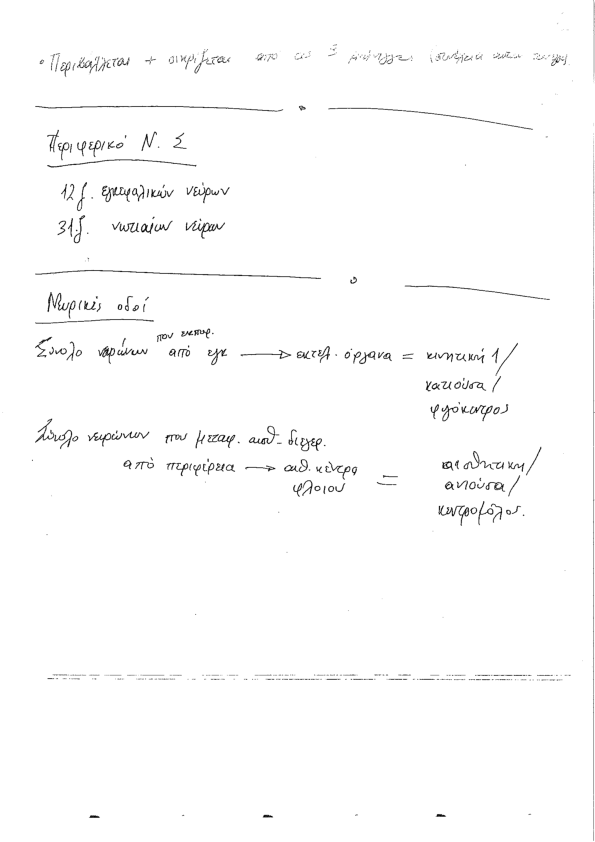 • Περιβάλλεται + στηρίζεται από τις 3 μήνιγγες (συνέχεια
Περιφερικό Ν. Σ
12 ζ. εγκεφαλικών νεύρων
31 ζ. νωτιαίων νεύρων
Νευρικές οδοί
που εκπορ.
Σύνολο νευρώνων από εγκ → εκτελ. όργανα = κινητική /
κατιούσα /
φυγόκεντρος
Σύνολο νευρώνων που μεταφ. αισθ. διεγερ.
από περιφέρεια → αισθ. κέντρα = αισθητική /
φλοιού ανιούσα /
κεντρομόλος.